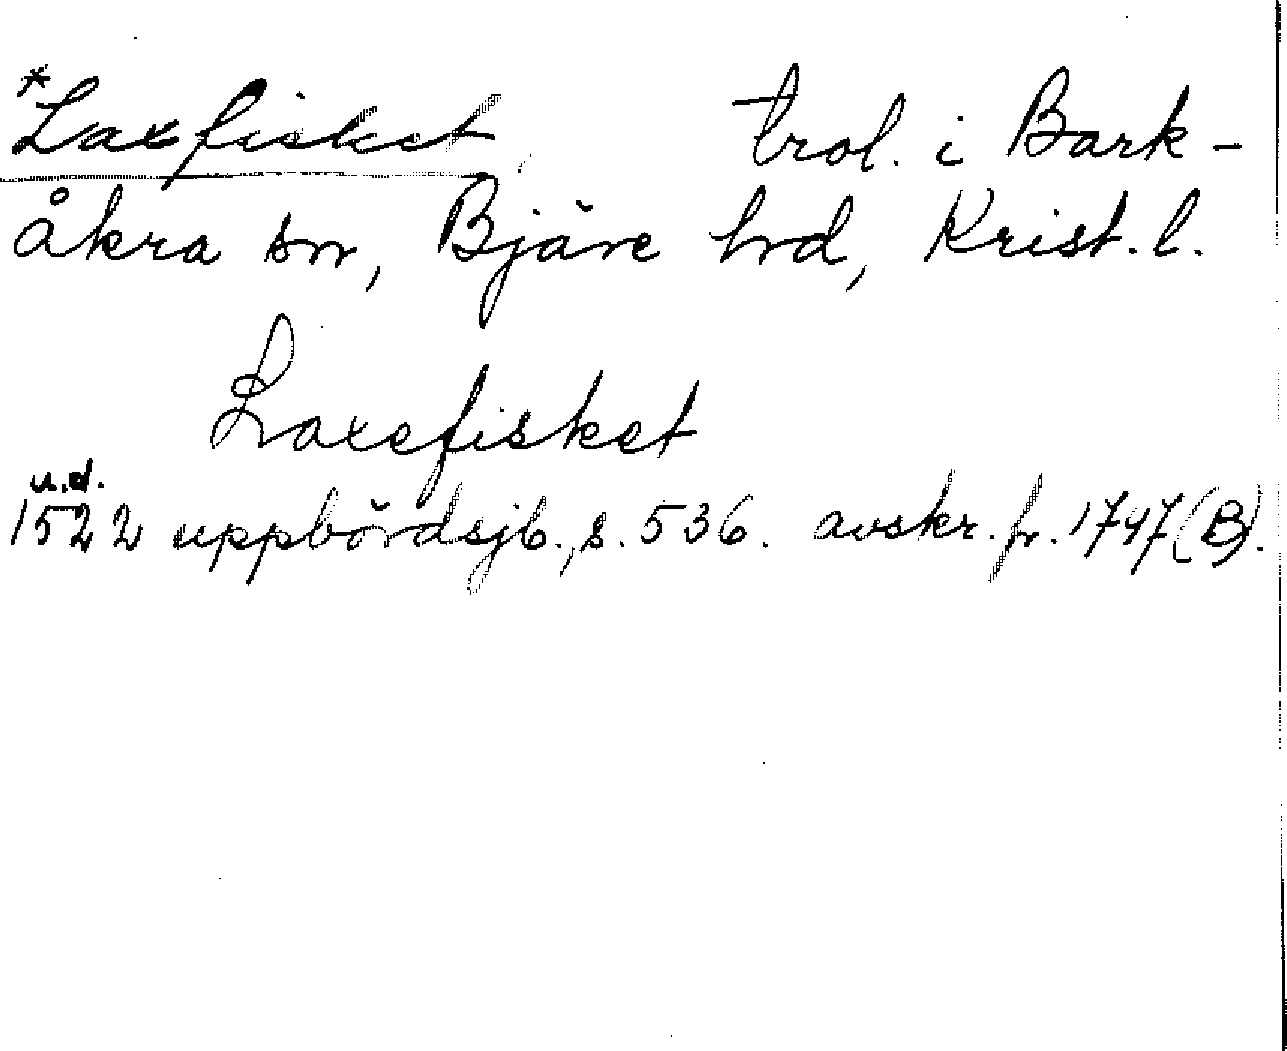 *Laxfisket trol. i Bark-
åkra sn, Bjäre hd, Krist. l.
Laxefisket
u.d.
1522 uppbördsjb., s. 536. avskr. fr. 1747 (B).